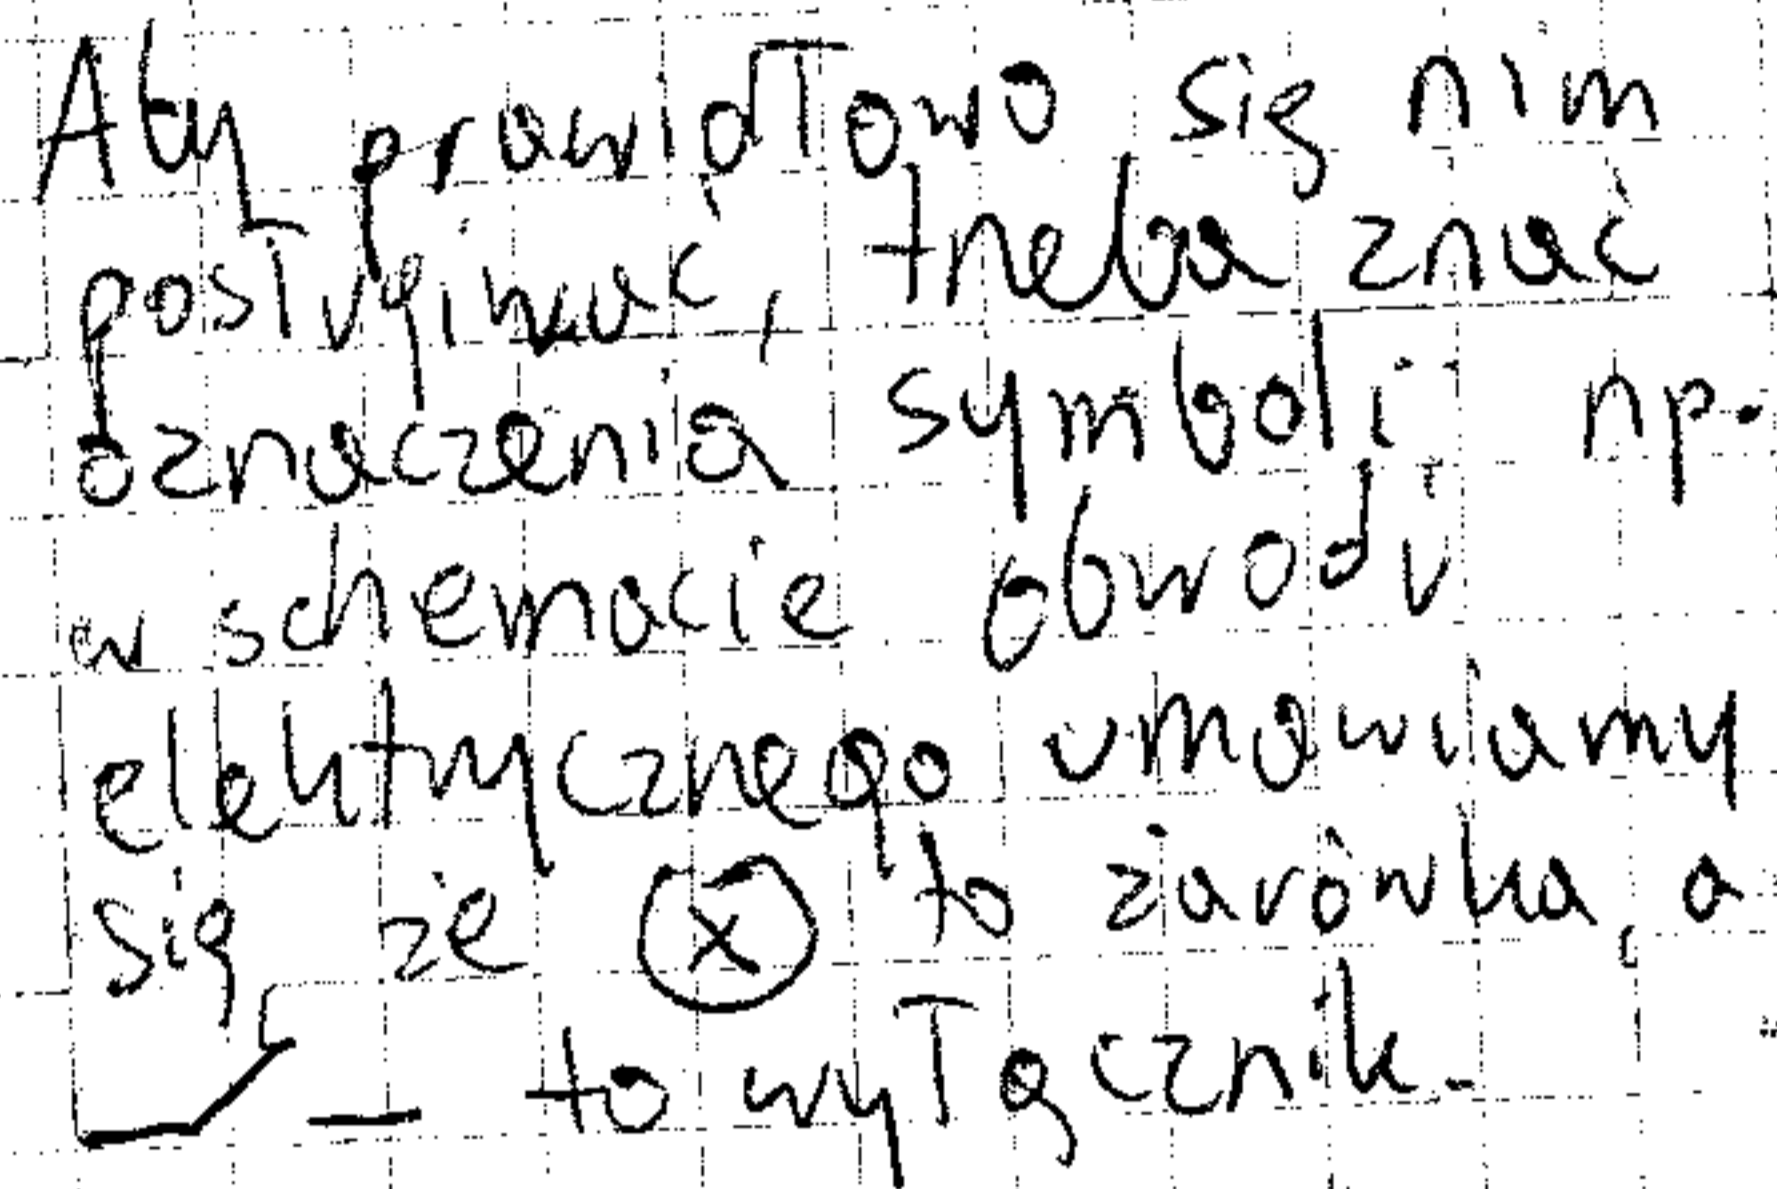 Aby prawidłowo się nim
posługiwać, trzeba znać
oznaczenia symboli np.
w schemacie obwodu
elektrycznego umawiamy
się że ⊗ to żarówka, a
to wyłącznik.